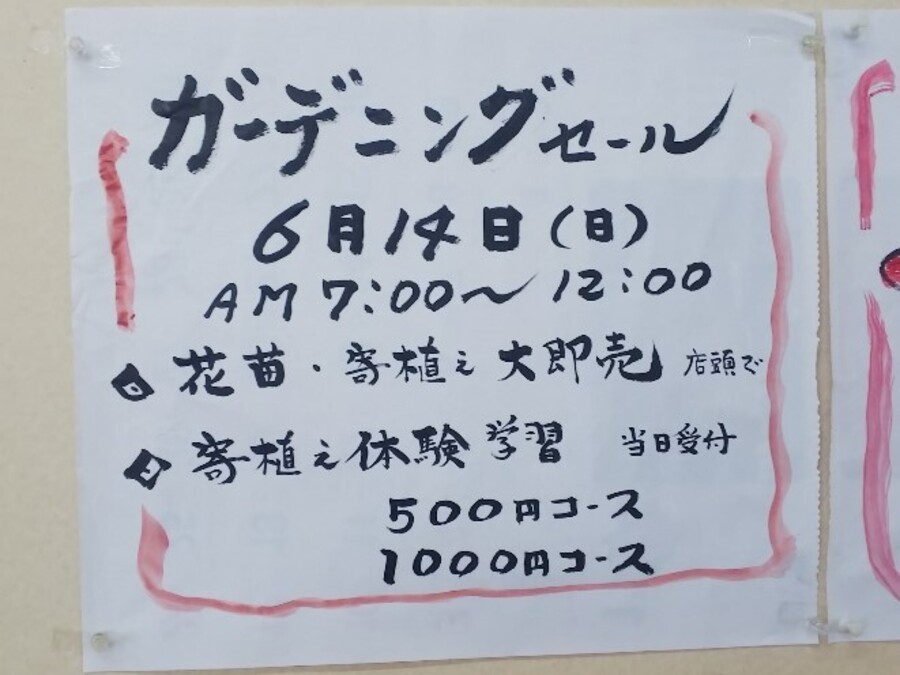 ガーデニングセール
6月14日(日)
AM 7:00〜12:00
花苗・寄植え 大即売 店頭で
寄植え体験学習 当日受付
500円コース
1000円コース